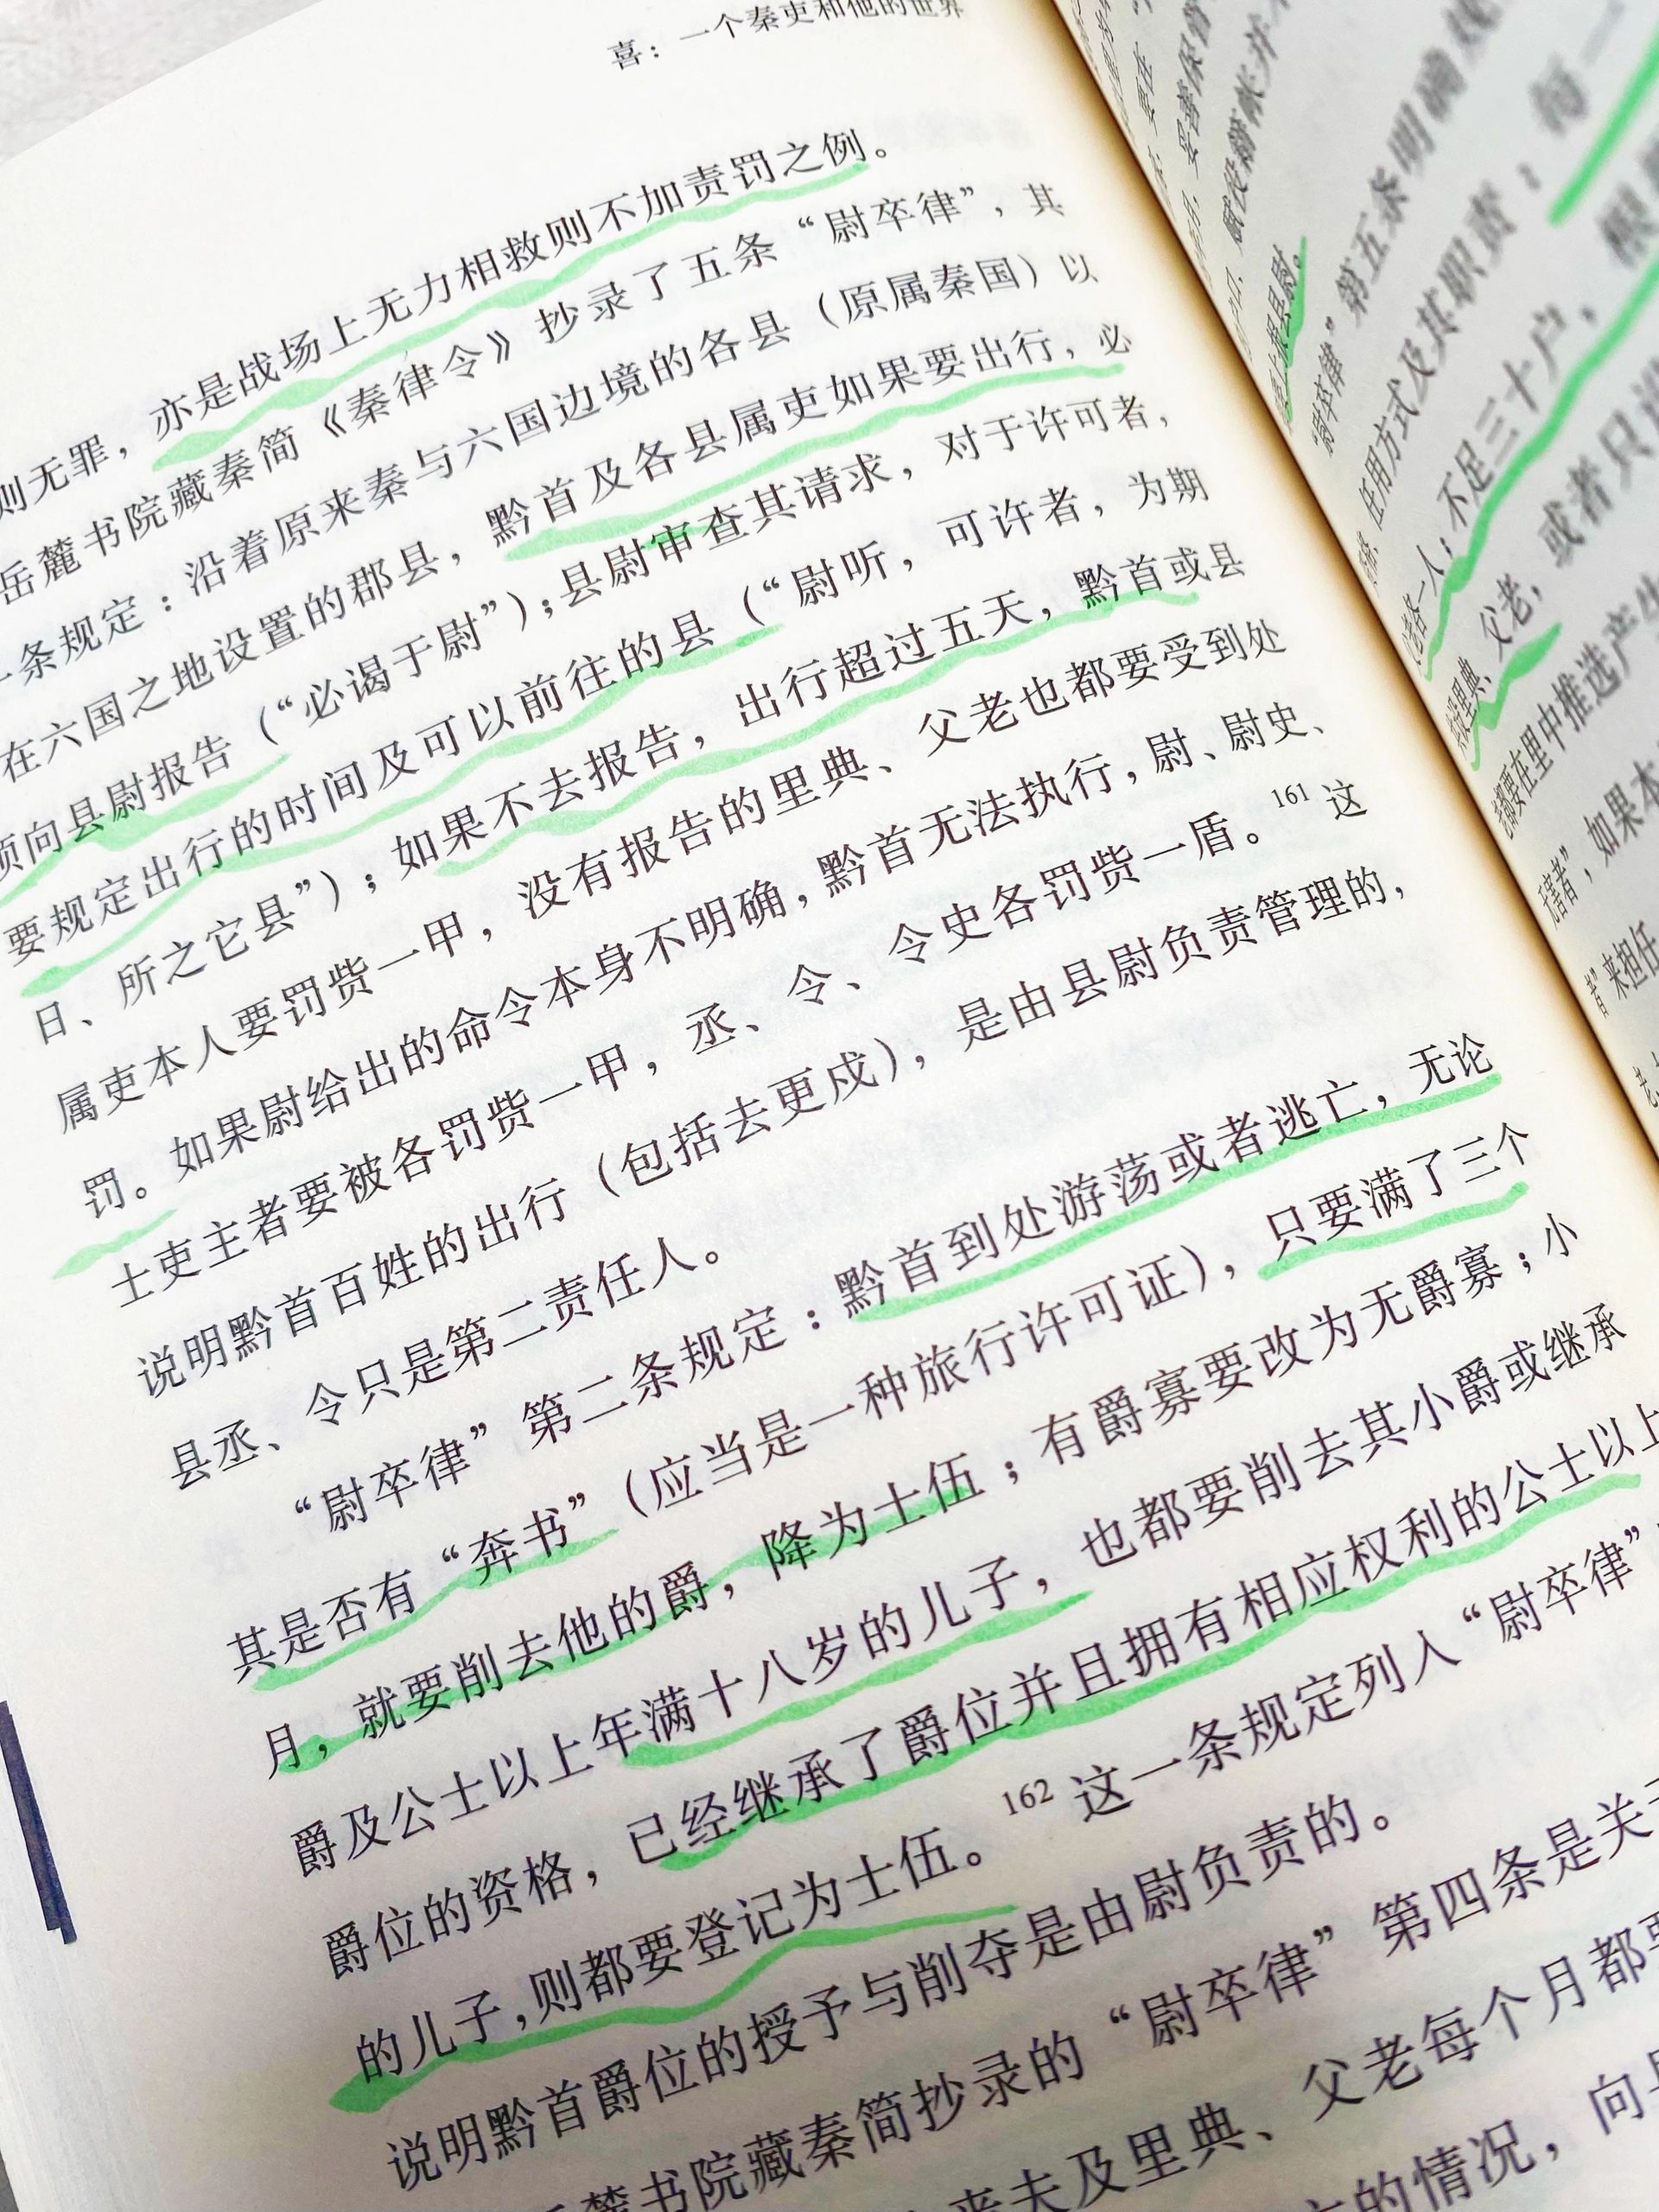 喜：一个秦吏和他的世界
则无罪，亦是战场上无力相救则不加责罚之例。
岳麓书院藏秦简《秦律令》抄录了五条“尉卒律”，其
一条规定：沿着原来秦与六国边境的各县（原属秦国）以
在六国之地设置的郡县，黔首及各县属吏如果要出行，必
须向县尉报告（“必谒于尉”）；县尉审查其请求，对于许可者，
要规定出行的时间及可以前往的县（“尉听，可许者，为期
日、所之它县”）；如果不去报告，出行超过五天，黔首或县
属吏本人要罚赀一甲，没有报告的里典、父老也都要受到处
罚。如果尉给出的命令本身不明确，黔首无法执行，尉、尉史、
士吏主者要被各罚赀一甲，丞、令、令史各罚赀一盾。161 这
说明黔首百姓的出行（包括去更戍），是由县尉负责管理的，
县丞、令只是第二责任人。
“尉卒律”第二条规定：黔首到处游荡或者逃亡，无论
其是否有“奔书”（应当是一种旅行许可证），只要满了三个
月，就要削去他的爵，降为士伍；有爵寡要改为无爵寡；小
爵及公士以上年满十八岁的儿子，也都要削去其小爵或继承
爵位的资格，已经继承了爵位并且拥有相应权利的公士以上
的儿子，则都要登记为士伍。162 这一条规定列入“尉卒律”
说明黔首爵位的授予与削夺是由尉负责的。
岳麓书院藏秦简抄录的“尉卒律”第四条是关于
夫及里典、父老每个月都要
的情况，向县
“尉卒律”第五条明确
任用方式及其职责：每一
老各一人；不足三十户，
里典、父老，或者只设
老都要在里中推选产生
害者”，如果本
者”来担任